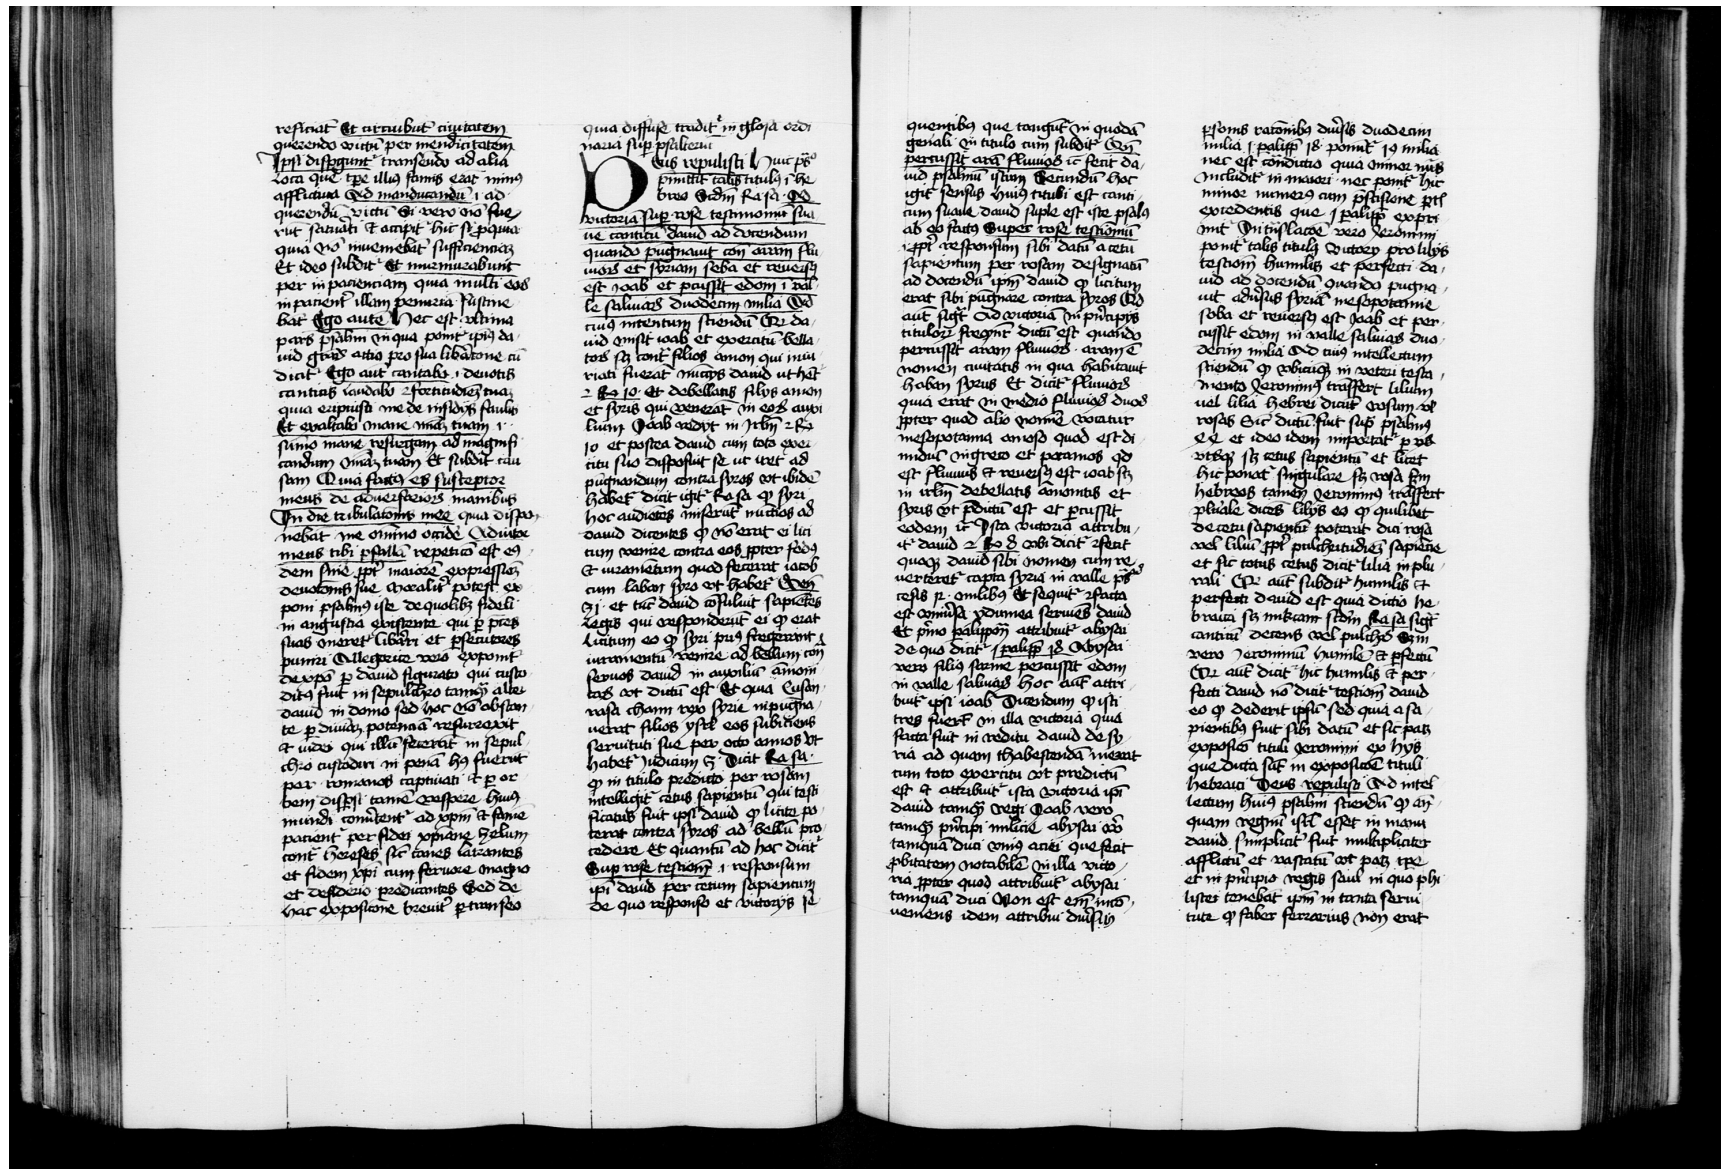 reficiat᷒ Et circuibūt ciuitatem
querendo victū per mendicitatem
Ipsi disꝑgunt᷒ transeundo ad alia
loca que tꝑe illius famis erāt minus
afflictiua Ad manducandū .i. ad
querendū victū Si vero nō fue
rīt saturati
quia nō inueniebāt sufficienciā
Et ideo subdit᷒ Et murmurabunt
per inpacienciam quia multi eos
inpacient᷒ illam penuria sustine
bāt Ego autē Hec est vltima
pars psalmi in qua ponit᷒ ipius da
uid grār̄ actio pro sua liberatione cū
dicit᷒ Ego aūt cantabo .i. deuotis
canticis laudabo fortitudinē tuā
quia eripuisti me de insidijs saulis
Et exaltabo mane mīam tuam .i.
summo mane resurgam ad magnifi
candum mīam tuam Et subdit cau
sam Quia factus es susceptor
meus de aduersarioꝝ manibus
In die tribulationis mee quia dispo
nebāt me omnino occide Adiutor
meus tibi psallā repeticio est eius
dem sniē ꝓpt᷒ maiorē expressionē
deuotionis sue Moralit᷒ potest ex
poni psalmus iste de quolibꝫ fideli
in angustia existente qui ꝑ pces
suas meret᷒ libāri et ꝑsecutores
puniri Allegorice vero exponit᷒
de xpo ꝑ dauid figurato qui custo
ditus fuit in sepulchro tamꝗ alter
dauid in domo sed hoc nō obstan
te ꝑ diuinā potenciā resurrexit
et iudei qui illū fecerāt in sepul
chro custodiri in penā hꝰ fuerūt
per romanos captiuati et ꝑ or
bem dispersi tamē vespere huius
mundi conuertent᷒ ad xpm̄ et famē
pacient᷒ per fidei xpiane zelum
cont᷒ hereses sic canes latrantes
et fidem xpi cum feruore magno
et desiderio predicantes Sed de
hac exposicione breuit᷒ ꝑtranseo
quia diffuse tradit᷒ in glosa ordi
naria sup ꝑsalteriū
Deus repulisti Huic psō
p̄mittit᷒ talis titulus ī he
breo Scd̄m Ra sa. Ad
victoriā suꝑ rose testimoniū sua
ue canticū dauid ad docendum
quando pugnauit con aram flu
uioꝝ et syriam soba et reuersꝫ
est ioab et ꝑcussit edom ī val
le salinaꝝ duodecim milia Ad
cuius intentum sciendū Qr̄ da
uid misit ioab et exercitū bella
toꝝ scꝫ cont᷒ filios amon qui iniu
riati fuerāt nuncijs dauid ut hēt᷒
2 Rꝫ 10. Et debellatis filijs amon
et syris qui venerāt in eoꝝ auxi
lium Ioab redijt in Irlm̄ 2 Rꝫ
10 et postea dauid cum toto exer
citu suo disposuit se ut iret ad
pugnandum contra syros vt ibidē
habet᷒ dicit igit᷒ Ra sa ꝙ syri
hoc audiētes miserūt nuncios ad
dauid dicentes ꝙ nō erat ei lici
tum venire contra eos ꝓpter fedꝰ
et iuramētum quod fecerat iacob
cum laban syro vt habet᷒ Gen̄
31. et tūc dauid cōsuluit sapiētes
legis qui responderūt ei ꝙ erat
licitum eo ꝙ syri prius fregerant
iuramentū venire ad bellum con
seruos dauid in auxiliū āmoni
taꝝ vt dictū est Et quia Cusan
rasa thaim rex syrie inpugna
uerat filios ysrl̄ eos subiciens
seruituti sue per octo annos vt
habet᷒ Iudicum 3. Dicit Ra sa.
ꝙ in titulo predicto per rosam
intelligit᷒ cetus sapientū qui testi
ficatus fuit ipsi dauid ꝙ licite po
terat contra syros ad bellū pro
cedere Et quantū ad hoc dicit᷒
Suꝑ rose testiom̄ .i. responsum
ipi dauid per cetum sapientum
de quo responso et victorijs se
quentibus que tangūt᷒ in quodā
gen̄ali in titulo cum subdit᷒ Qn̄
percussit arā fluuioꝝ ic̄ fecit da
uid psalmū istum Secundū hoc
igit᷒ sensus huius tituli est canti
cum suaue dauid suple est iste psalꝰ
ab eo factus Super rose testioniū
.i. ꝓpt᷒ responsum sibi datū a cetu
sapientum per rosam designatū
ad docendū ipm̄ dauid ꝙ licitum
erat sibi pugnare contra syros Qd̄
aūt sigt᷒ Ad victoriā in p̄ncipijs
tituloꝝ freqn̄t᷒ dictū est quando
percussit aram fluuioꝝ. aram ē
nomen ciuitatis in qua habitauit
laban syrus Et dicit᷒ fluuioꝝ
quia erat in medio fluuios duos
ꝓpter quod alio nomīe vocatur
mesopotamia a meso quod est di
midiū in greco et potamos qd̄
est fluuius et reuersꝫ est ioab scꝫ
in irlm̄ debellatis amonitis et
syris vt p̄dictū est et ꝑcussit
eodem ic̄ Ista victoria attribu
it᷒ dauid 2 Rꝫ 8 vbi dicit᷒ fecit
quoqꝫ dauid sibi nomen cum re
uerteret᷒ capta syria in valle
cesis 18. milibus Et sequit᷒ facta
est vniūsa ydumea seruiēs dauid
Et p̄mo palippon̄ attribuit᷒ abysai
de quo dicit᷒ .1. palipp̄ 18 Abysai
vero filius saruie percussit edom
in valle salinaꝝ hoc aūt attri
buit᷒ ipsi ioab Dicendum ꝙ isti
tres fuerūt in illa victoria quia
facta fuit in reditu dauid de sy
ria ad quam thabescendā iuerat
cum toto exercitu vt predictū
est et attribuit᷒ ista victoria ipi
dauid tamꝗ regi Ioab vero
tamꝗ p̄ncipi milicie abysai vo
tamquā duci vnius aciei que fecit
ꝓbitatem notabilē in illa victo
ria ꝓpter quod attribuit᷒ abysai
tamquā duci Non est em̄ incō
ueniens idem attribui diūsis
ꝑsonis rationibus diūsis duodecim
milia .1. palipp̄ 18. ponit᷒ 18 milia
nec est cōdictio quia minor nr̄us
includit᷒ in maiori nec ponit᷒ hic
minor numerus cum p̄cisione ꝑtis
excedentis que .1. palipp̄ expri
mit᷒ In trāslacōe vero Ieronimi
ponit᷒ talis titulus Victori pro lilijs
testiom̄ humilis et perfecti da
uid ad docendū quando pugna
uit adūsus syriā mesopotamie
soba et reuersꝫ est Ioab et per
cussit edom in valle salinaꝝ duo
decim milia Ad cuius intellectum
sciendū ꝙ vbicūqꝫ in veteri testa
mento Ieronimus trāsfert lilium
vel lilia hebrei dicūt rosum vl̄
rosas Sic dictū fuit suꝑ psalmū
44 et ideo idem importat᷒ ꝑ vꝰ
vtrūqꝫ scꝫ cetus sapientū et licet
hic ponat᷒ singulare scꝫ rosa scdm̄
hebreos tamen Ieronimus trāsfert
pl̄urale dicēs lilijs eo ꝙ quilibet
de cetu sapientū poterat dici rosa
vel liliū ꝓpt᷒ pulchritudinē sapiēcie
et sic totus cetus dicit᷒ lilia in plu
rali Qr̄ aūt subdit᷒ humilis et
perfecti dauid est quia dictio he
braica scꝫ miktam scdm̄ Ra sa sigt᷒
canticū decens vel pulchꝝ Scd̄m
vero Ieronimū humilē et ꝑfectū
Qr̄ aūt dicit᷒ hic humilis et per
fecti dauid nō dicit᷒ testiom̄ dauid
eo ꝙ dederit ipsū sed quia a sa
pientibus fuit sibi datū et sic patꝫ
exposicō tituli Ieronimi ex hijs
que dicta sūt in exposicōe tituli
hebraici Deus repulisti Ad intel
lectum huius psalmi sciendū ꝙ an̄
quam regnū isrl̄ esset in manu
dauid simplicit᷒ fuit multipliciter
afflictū et vastatū vt patꝫ tꝑe
et in p̄ncipio regis saul in quo phi
listei tenebāt ipm̄ in tanta serui
tute ꝙ faber ferrarius non erat